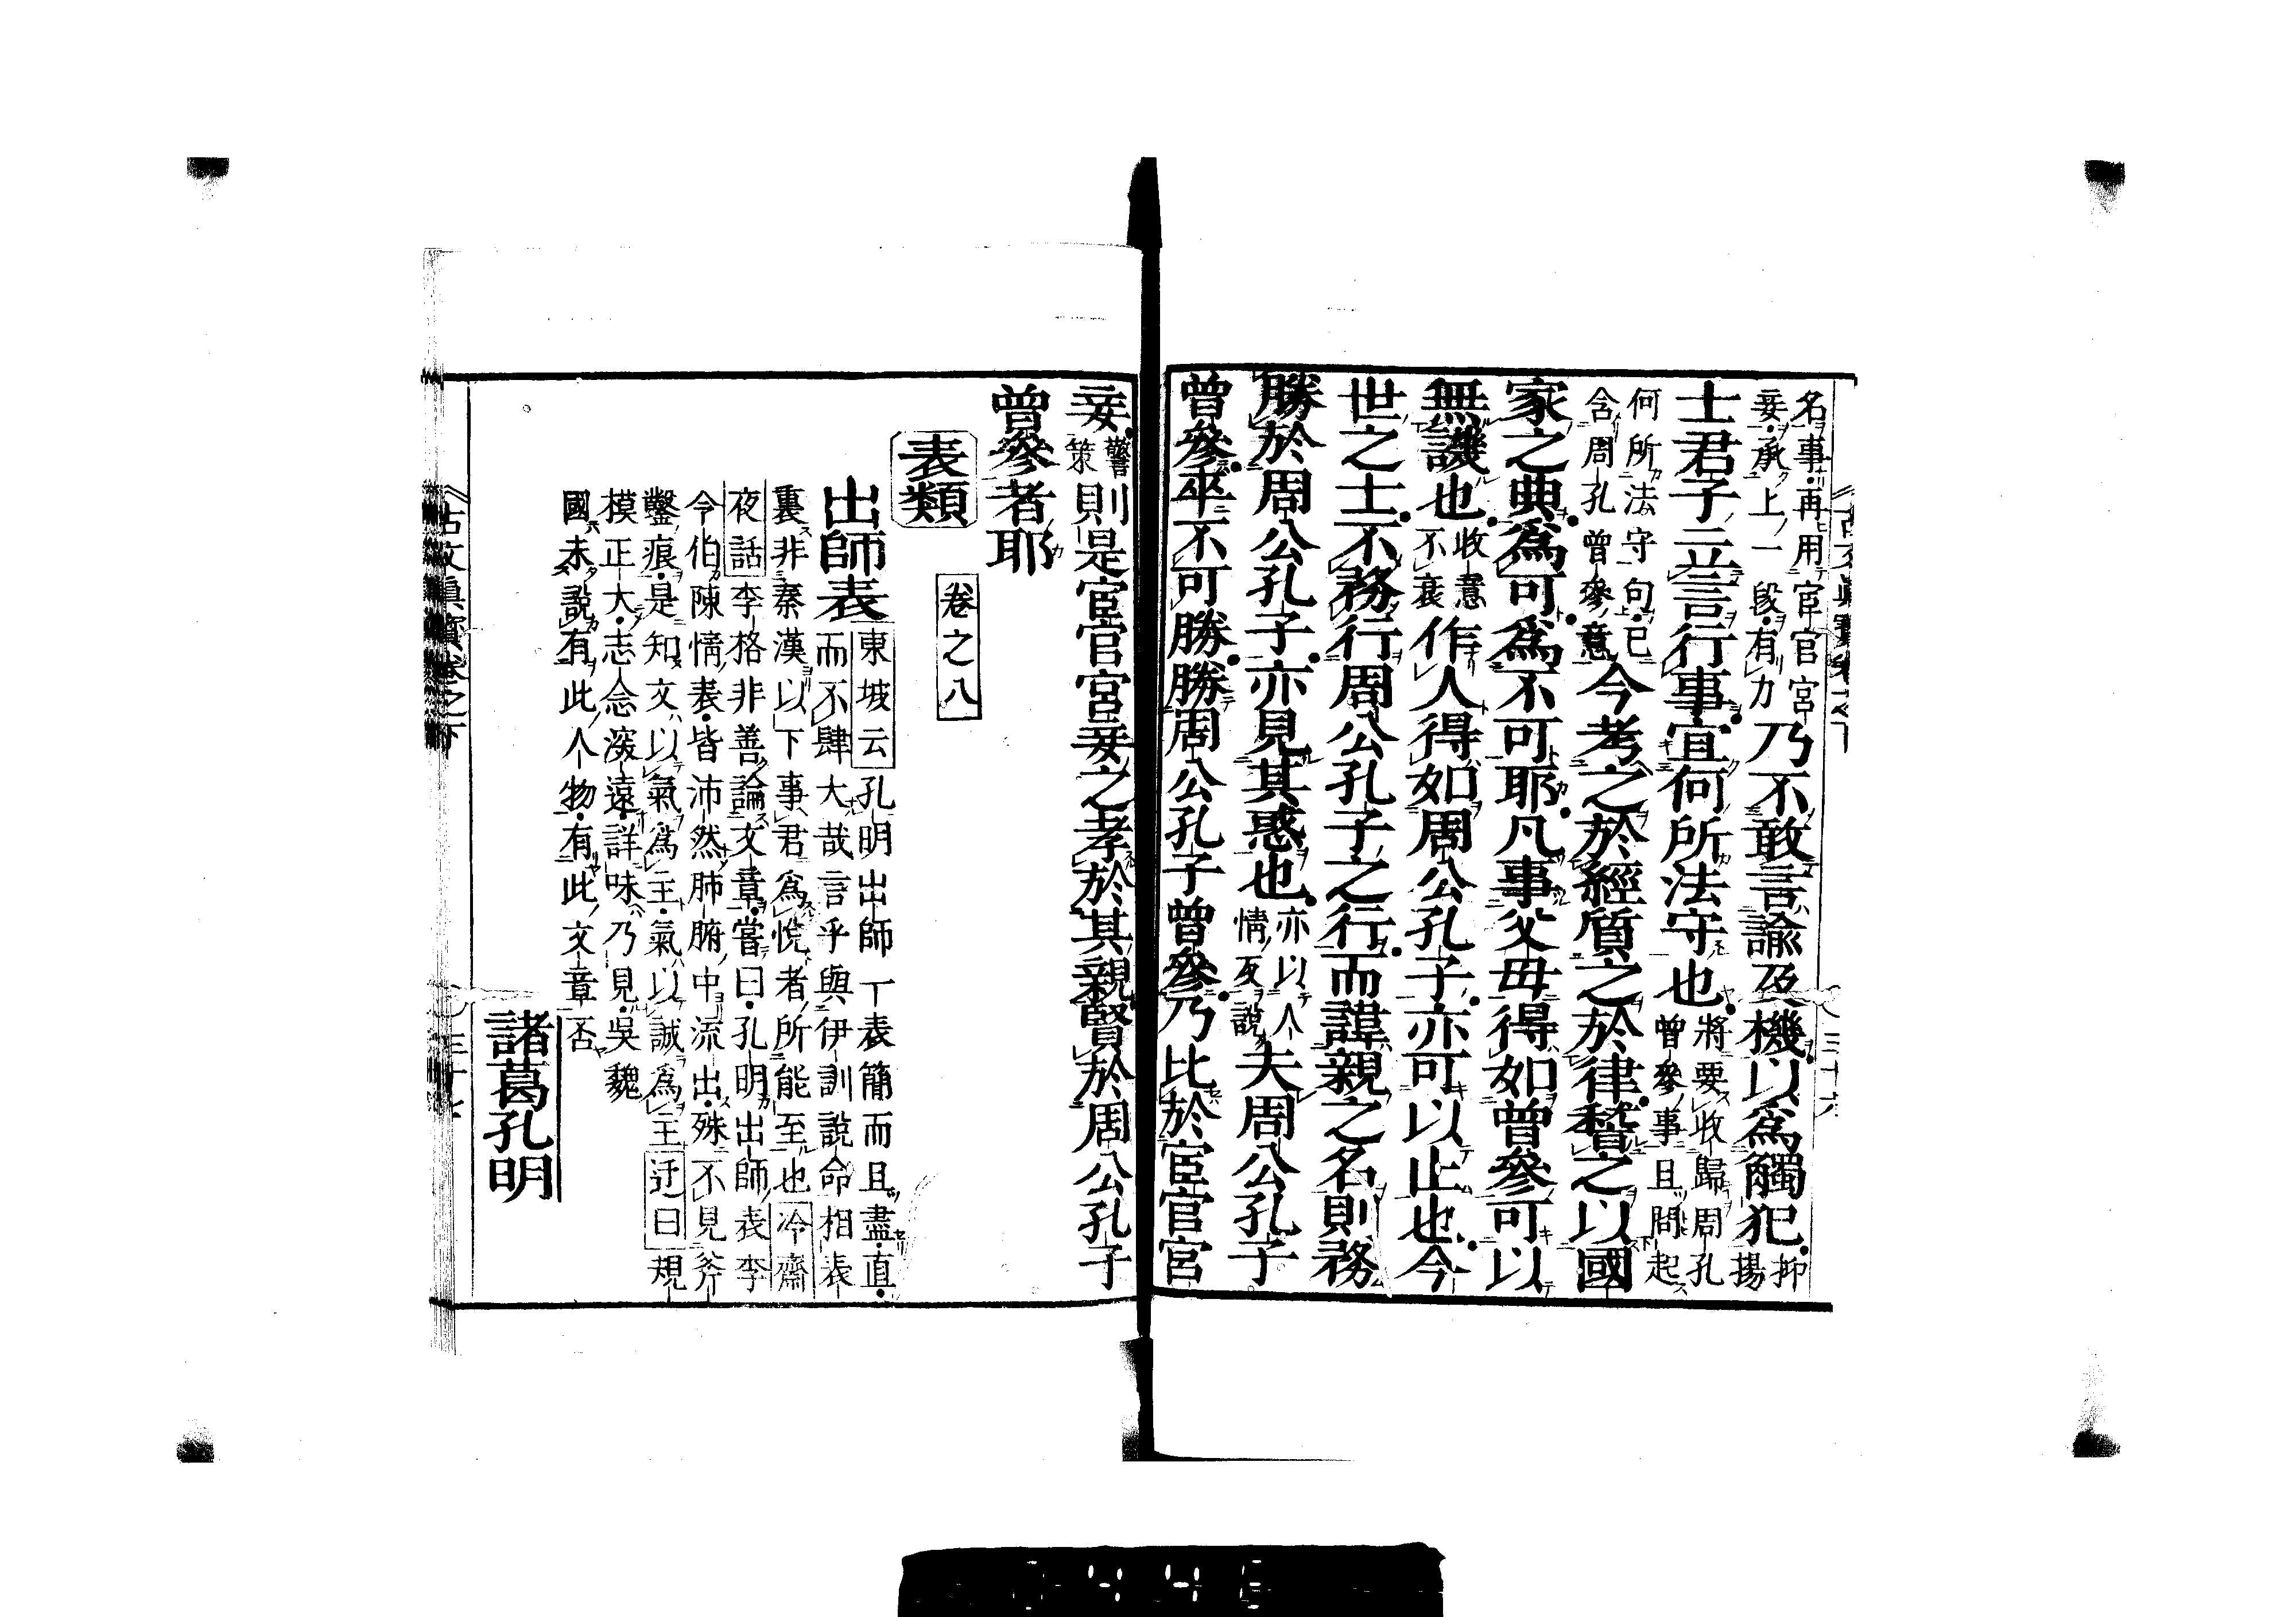 名事再用宦官宮
妾承上一段有力
乃不敢言諭及機以爲觸犯
抑
揚
士君子立言行事宜何所法守也
將要收歸周孔
曾參事且問起
何所法守句已
含周孔曾參意
今考之於經質之於律稽之以國
家之典爲可爲不可耶凡事父母得如曾參可以
無譏也
收意
不衰
作人得如周公孔子亦可以止也今
世之士不務行周公孔子之行而諱親之名則務
勝於周公孔子亦見其惑也
亦以人
情反說
夫周公孔子
曾參卒不可勝勝周公孔子曾參乃比於宦官宮
妾
警
策
則是宦官宮妾之孝於其親賢於周公孔子
曾參者耶
卷之八
表類
出師表
東坡云孔明出師一表簡而且盡直
而不肆大哉言乎與伊訓說命相表
裏非秦漢以下事君爲悅者所能至也冷齋
夜話李格非善論文章嘗曰孔明出師表李
令伯陳情表皆沛然肺腑中流出殊不見斧
鑿痕是知文以氣爲主氣以誠爲主迂曰規
模正大志念深遠詳味乃見吳魏
國未說有此人物有此文章否
諸葛孔明
古文眞寶卷之下